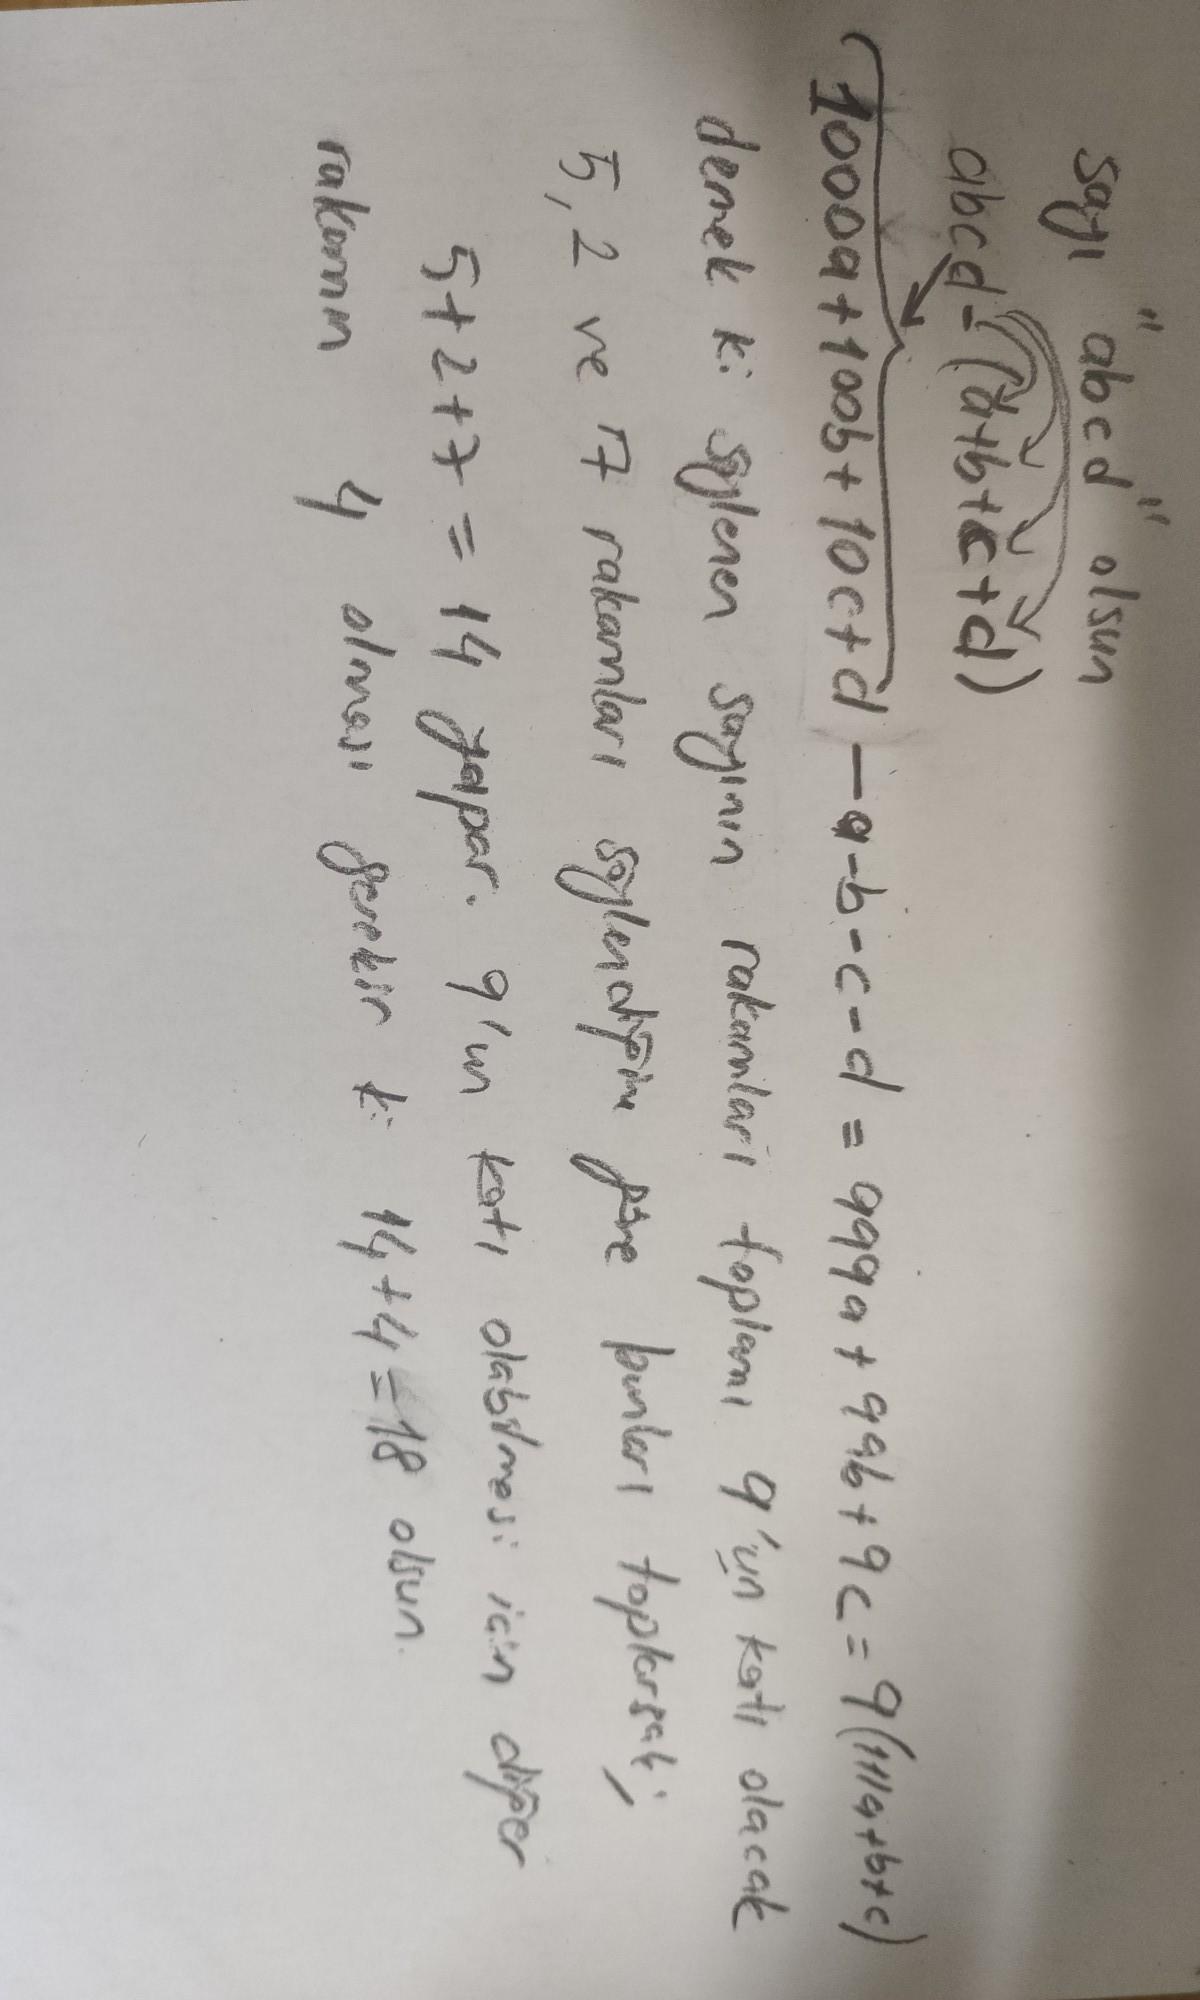 sayı "abcd" olsun
abcd-(a+b+c+d)
(1000a+100b+10c+d-a-b-c-d=999a+99b+9c=9(111a+b+c)
demek ki söylenen sayının rakamları toplamı 9'un katı olacak
5, 2 ve 7 rakamları söylendiğine göre bunları toplarsak;
5+2+7=14 yapar. 9'un katı olabilmesi için diğer
rakamın 4 olması gerekir ki 14+4=18 olsun.